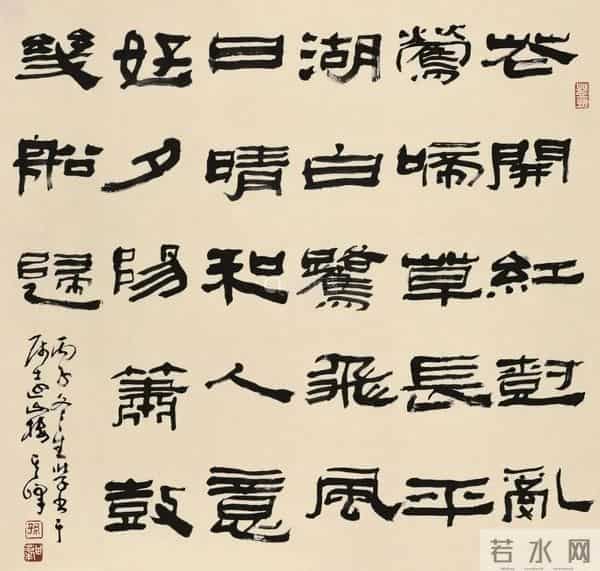 花開紅尌亂
鶯啼草長平
湖白鷺飛風
日晴和人意
好夕陽簫鼓
幾船歸
丙子冬
山樓其峰
若水网